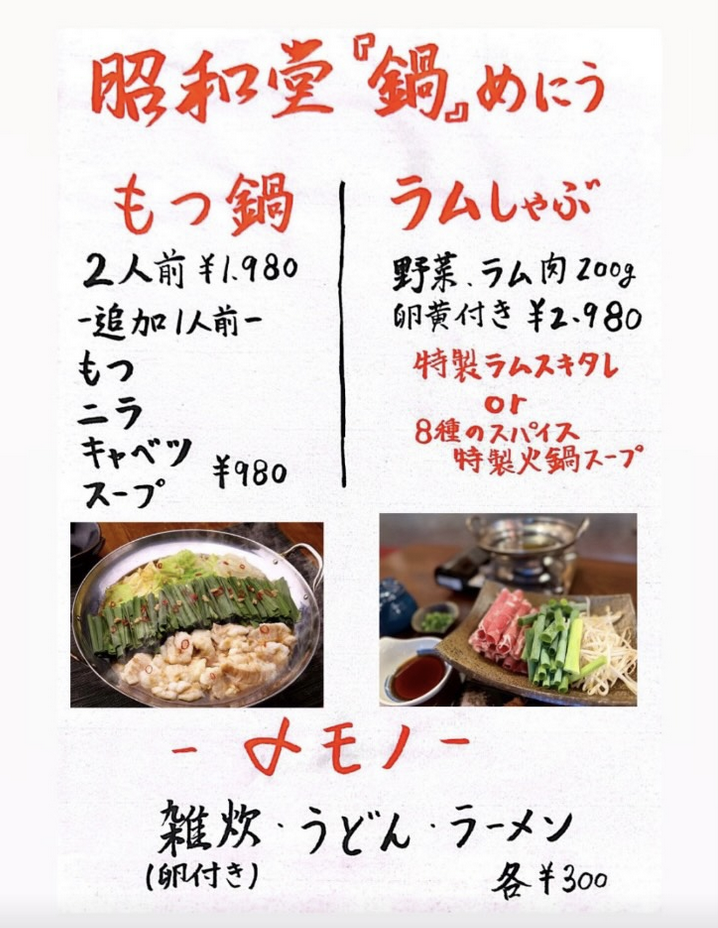 昭和堂『鍋』めにう
もつ鍋
2人前 ¥1.980
-追加1人前-
もつ
ニラ
キャベツ
スープ
¥980
ラムしゃぶ
野菜、ラム肉200g
卵黄付き ¥2.980
特製ラムスキタレ
or
8種のスパイス
特製火鍋スープ
- 〆モノ -
雑炊・うどん・ラーメン
(卵付き)
各¥300